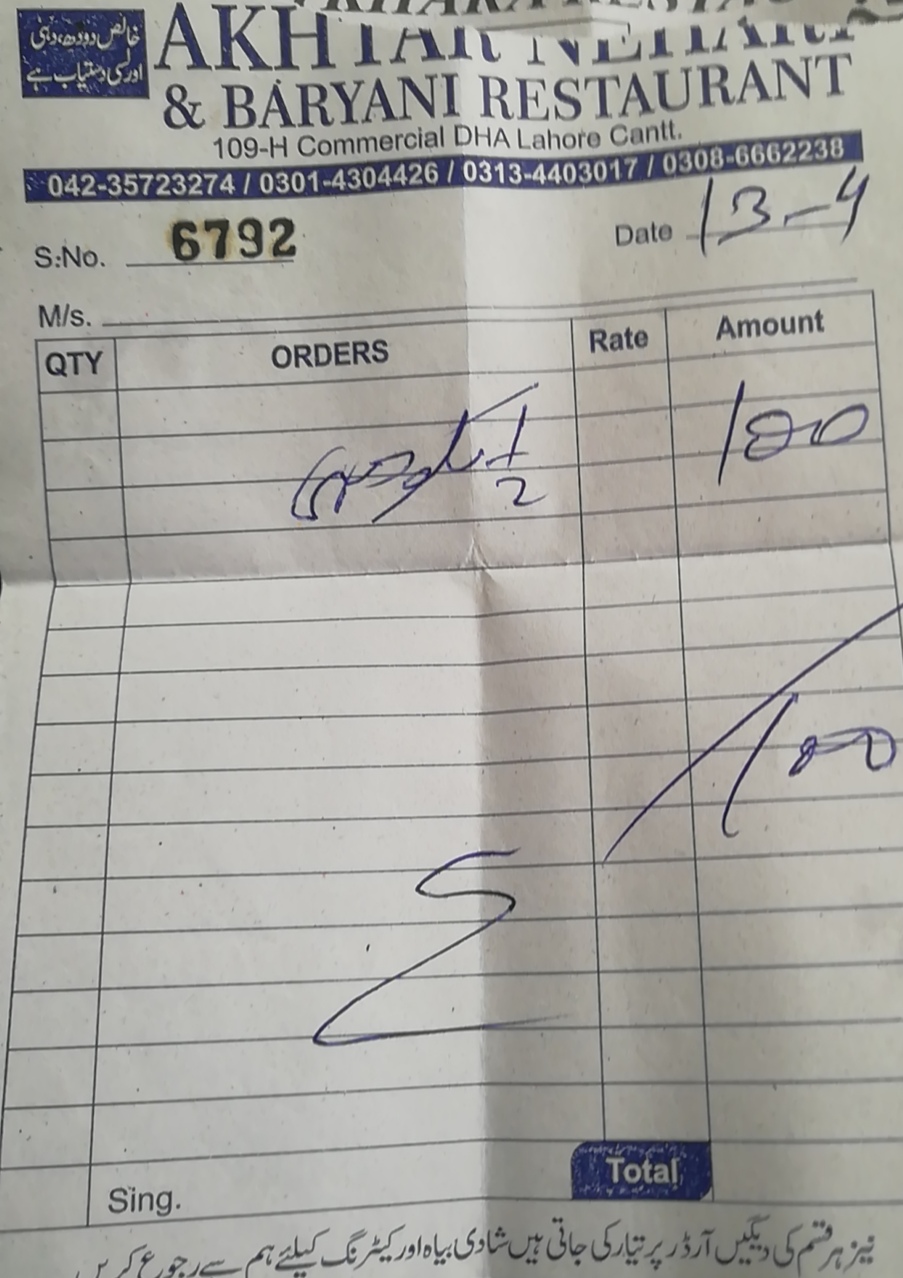 خالص دودھ، دہی
اور لسی دستیاب ہے
AKHTAR NEHARI
& BARYANI RESTAURANT
109-H Commercial DHA Lahore Cantt.
042-35723274 / 0301-4304426 / 0313-4403017 / 0308-6662238
S:No. 6792 Date 13-4
M/s.
QTY ORDERS Rate Amount
1/2 100
100
Sing. Total
نیز ہر قسم کی دیگیں آرڈر پر تیار کی جاتی ہیں شادی بیاہ اور کیٹرنگ کیلئے ہم سے رجوع کریں